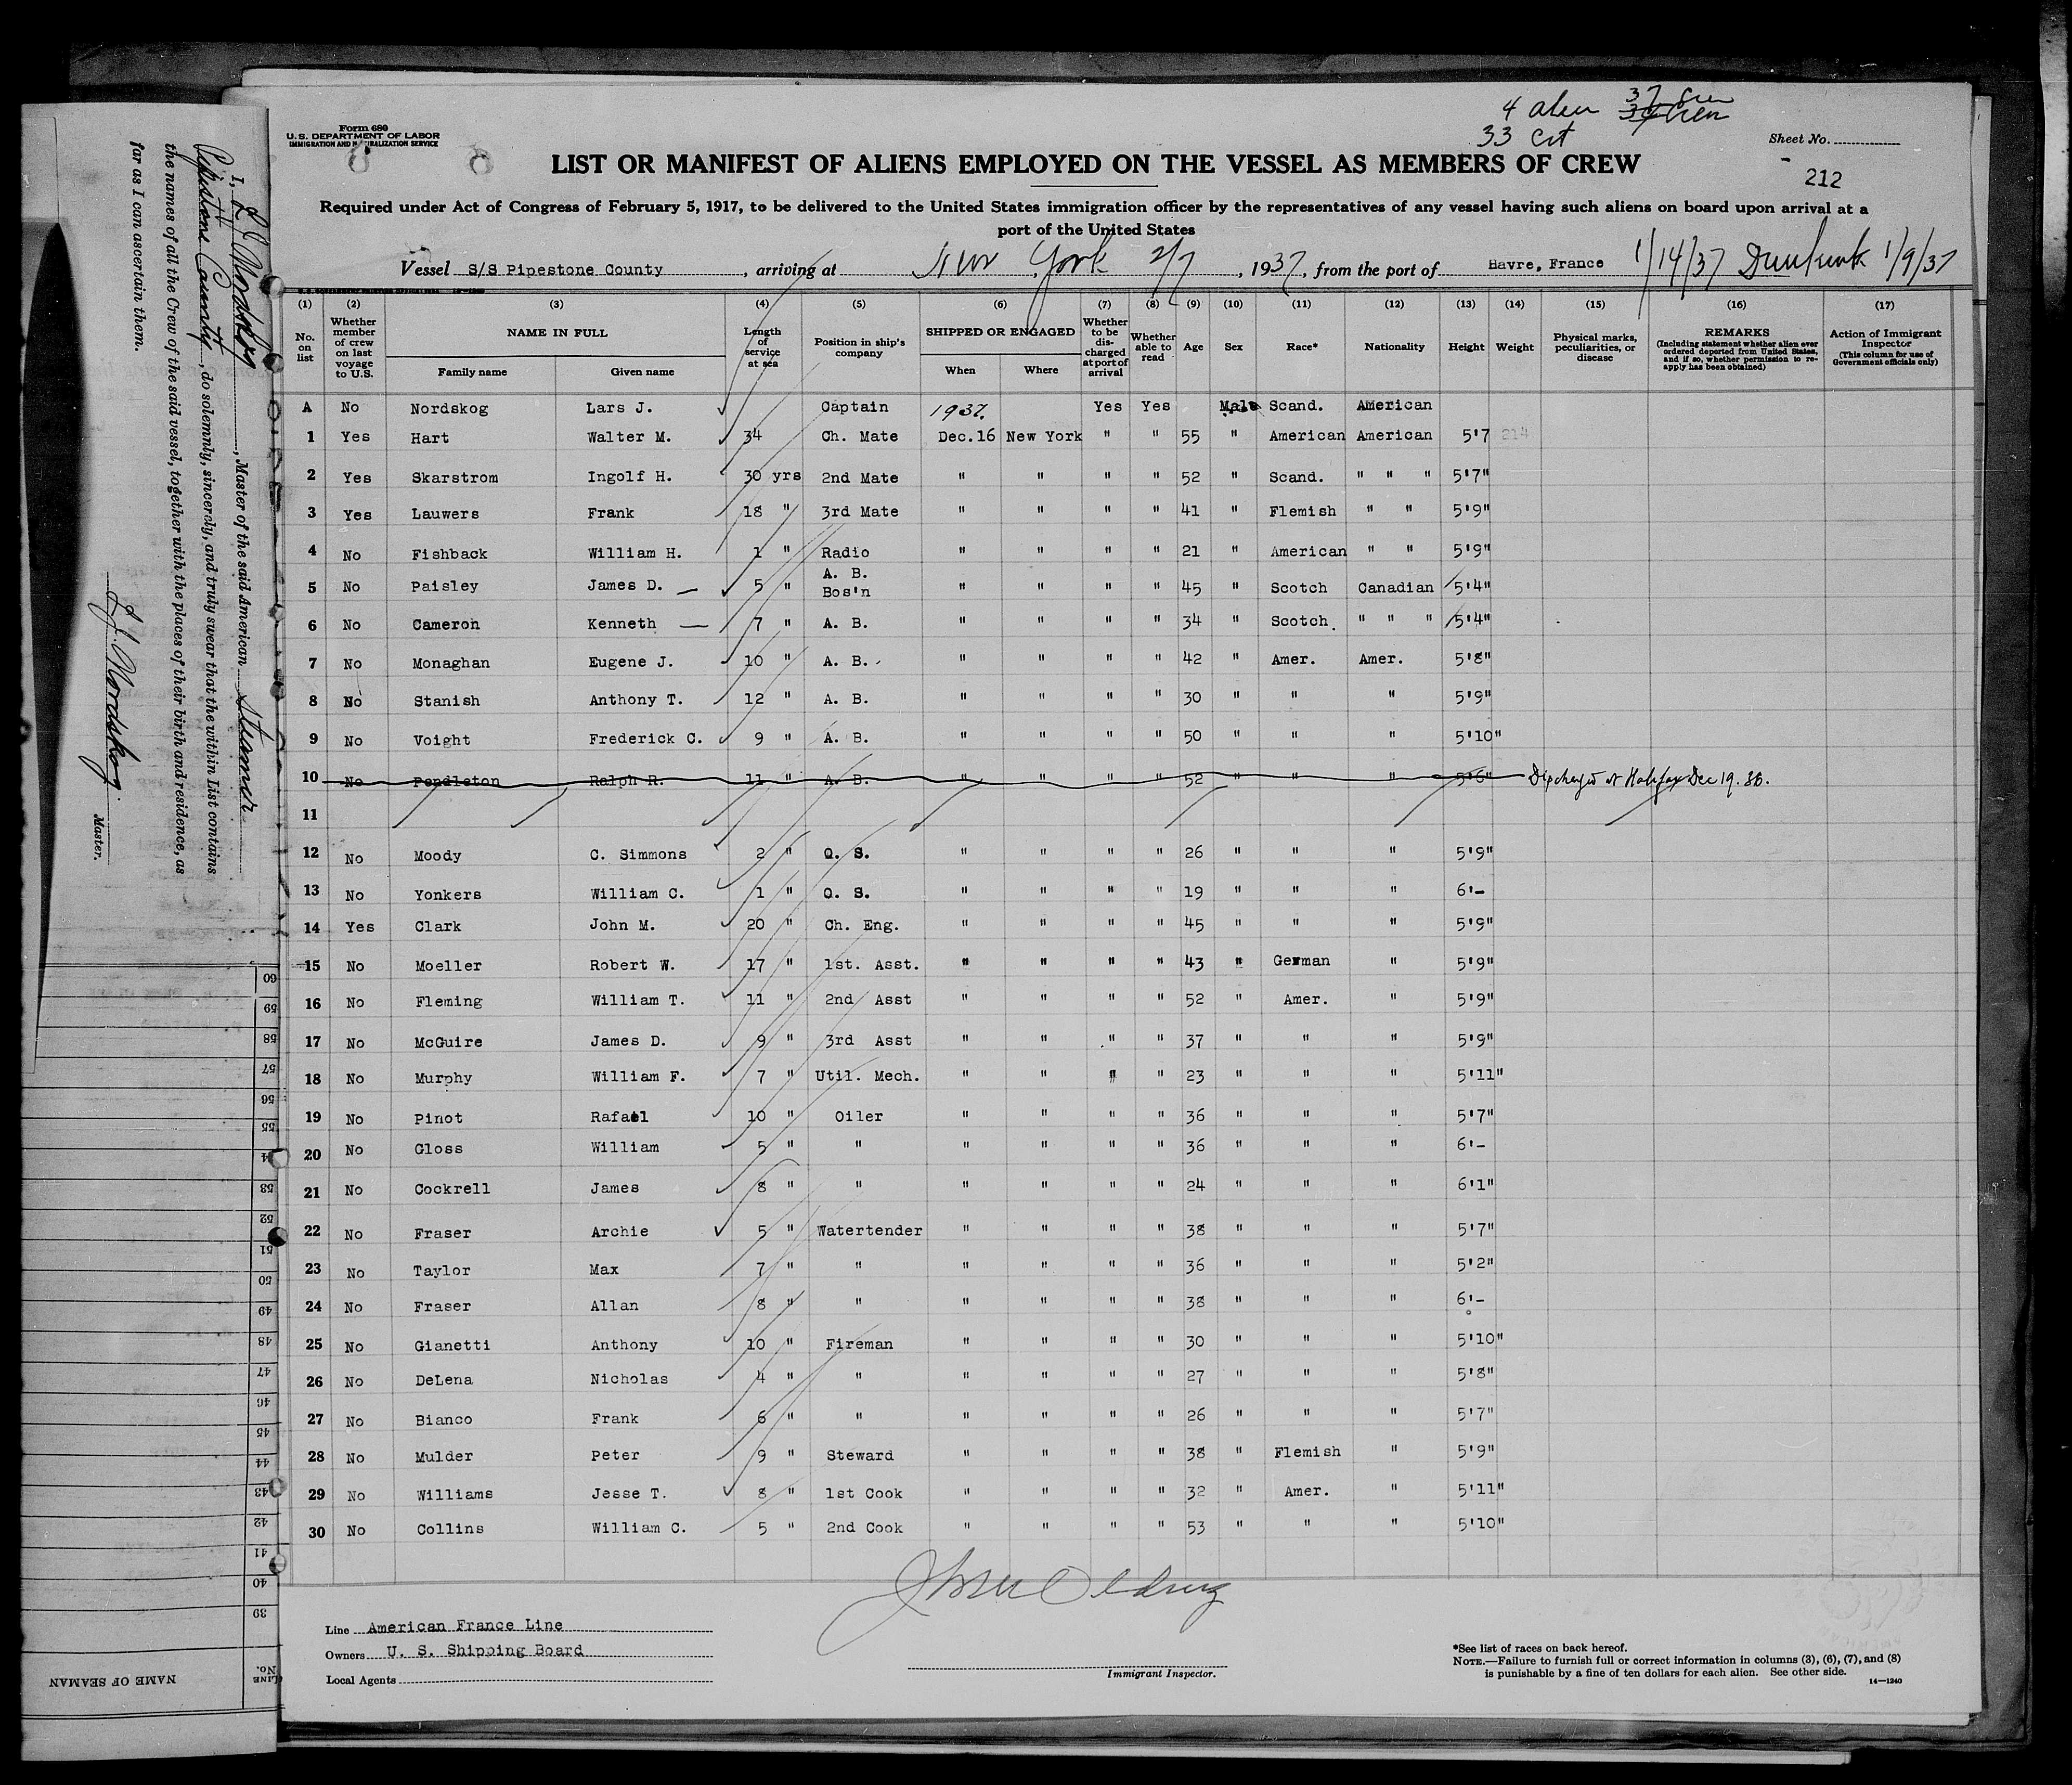 4 alien 37
33 cit
Form 680
U.S. DEPARTMENT OF LABOR
IMMIGRATION AND NATURALIZATION SERVICE
Sheet No.
212
LIST OR MANIFEST OF ALIENS EMPLOYED ON THE VESSEL AS MEMBERS OF CREW
Required under Act of Congress of February 5, 1917, to be delivered to the United States immigration officer by the representatives of any vessel having such aliens on board upon arrival at a
port of the United States
Vessel S/S Pipestone County, arriving at New York 2/7, 1937, from the port of Havre, France 1/14/37 Dunkirk 1/9/37
(1) (2) (3) (4) (5) (6) (7) (8) (9) (10) (11) (12) (13) (14) (15) (16) (17)
No. on list
Whether member of crew on last voyage to U.S.
NAME IN FULL
Family name
Given name
Length of service at sea
Position in ship's company
SHIPPED OR ENGAGED
When
Where
Whether to be discharged at port of arrival
Whether able to read
Age
Sex
Race*
Nationality
Height
Weight
Physical marks, peculiarities, or disease
REMARKS
(Including statement whether alien ever ordered deported from United States, and if so, whether permission to reapply has been obtained)
Action of Immigrant Inspector
(This column for use of Government officials only)
A No Nordskog Lars J. Captain 1937. Yes Yes Male Scand. American
1 Yes Hart Walter M. 34 Ch. Mate Dec.16 New York " " 55 " American American 5'7 214
2 Yes Skarstrom Ingolf H. 30 yrs 2nd Mate " " " " 52 " Scand. " " " 5'7"
3 Yes Lauwers Frank 18 " 3rd Mate " " " " 41 " Flemish " " 5'9"
4 No Fishback William H. 1 " Radio " " " " 21 " American " " 5'9"
5 No Paisley James D. — 5 " A. B. Bos'n " " " " 45 " Scotch Canadian 5'4"
6 No Cameron Kenneth — 7 " A. B. " " " " 34 " Scotch. " " " 5'4"
7 No Monaghan Eugene J. 10 " A. B. " " " " 42 " Amer. Amer. 5'8"
8 No Stanish Anthony T. 12 " A. B. " " " " 30 " " " 5'9"
9 No Voight Frederick C. 9 " A. B. " " " " 50 " " " 5'10"
10 No Pendleton Ralph R. 11 " A. B. " " " " 52 " " " 5'6" Discharged at Halifax Dec 19. 36.
11
12 No Moody C. Simmons 2 " O. S. " " " " 26 " " " 5'9"
13 No Yonkers William C. 1 " O. S. " " " " 19 " " " 6'-
14 Yes Clark John M. 20 " Ch. Eng. " " " " 45 " " " 5'9"
15 No Moeller Robert W. 17 " 1st. Asst. " " " " 43 " German " 5'9"
16 No Fleming William T. 11 " 2nd Asst " " " " 52 " Amer. " 5'9"
17 No McGuire James D. 9 " 3rd Asst " " " " 37 " " " 5'9"
18 No Murphy William F. 7 " Util. Mech. " " " " 23 " " " 5'11"
19 No Pinot Rafael 10 " Oiler " " " " 36 " " " 5'7"
20 No Gloss William 5 " " " " " " 36 " " " 6'-
21 No Cockrell James 8 " " " " " " 24 " " " 6'1"
22 No Fraser Archie 5 " Watertender " " " " 38 " " " 5'7"
23 No Taylor Max 7 " " " " " " 36 " " " 5'2"
24 No Fraser Allan 8 " " " " " " 38 " " " 6'-
25 No Gianetti Anthony 10 " Fireman " " " " 30 " " " 5'10"
26 No DeLena Nicholas 4 " " " " " " 27 " " " 5'8"
27 No Bianco Frank 6 " " " " " " 26 " " " 5'7"
28 No Mulder Peter 9 " Steward " " " " 38 " Flemish " 5'9"
29 No Williams Jesse T. 8 " 1st Cook " " " " 32 " Amer. " 5'11"
30 No Collins William C. 5 " 2nd Cook " " " " 53 " " " 5'10"
Line American France Line
Owners U. S. Shipping Board
Local Agents
Immigrant Inspector.
*See list of races on back hereof.
NOTE.—Failure to furnish full or correct information in columns (3), (6), (7), and (8)
is punishable by a fine of ten dollars for each alien. See other side.
14—1240
I, L J Nordskog, Master of the said American Steamer
Pipestone County, do solemnly, sincerely, and truly swear that the within List contains
the names of all the Crew of the said vessel, together with the places of their birth and residence, as
far as I can ascertain them.
L. J. Nordskog.
Master.
60
59
58
57
56
55
54
53
52
51
50
49
48
47
46
45
44
43
42
41
40
39
LINE No.
NAME OF SEAMAN